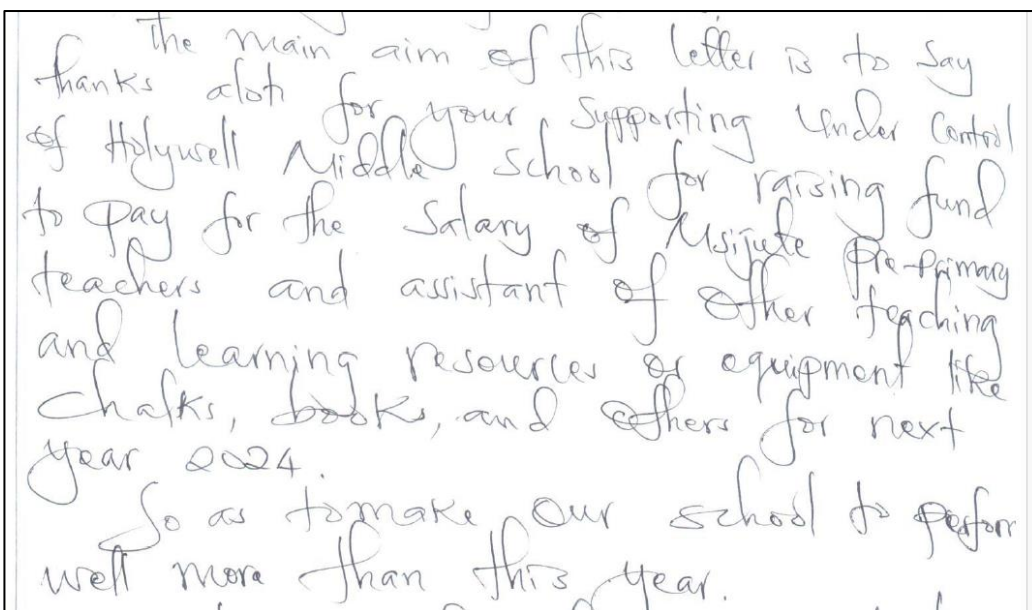 The main aim of this letter is to Say
thanks alot for your Supporting Under Control
of Holywell Middle School for raising fund
to pay for the Salary of Msijute Pre-Primary
teachers and assistant of Other teaching
and learning resources or equipment like
Chalks, books, and Others for next
year 2024.
So as tomake Our school to perform
well more than this year.